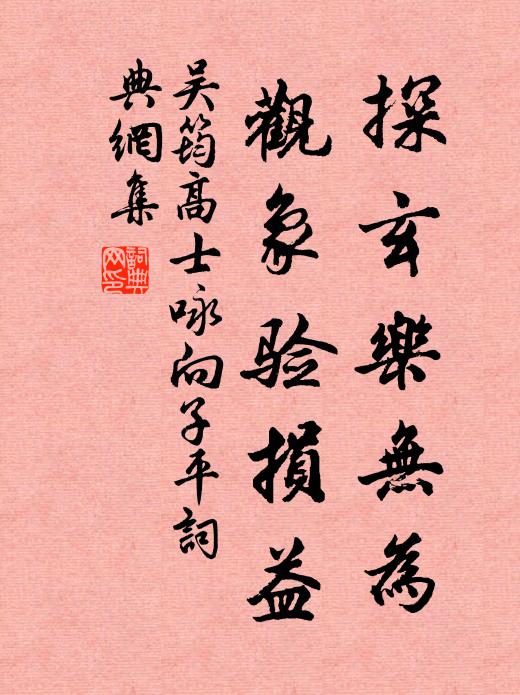 探玄樂無為
觀象验損益
吴筠高士咏向子平詞
典網集
詞典
网印